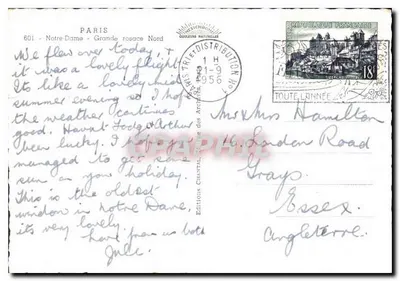 PARIS
601. - Notre-Dame - Grande rosace Nord
We flew over today, &
it was a lovely flight
Its like a lovely mid
summer evening so I hope
the weather continues
good. Havnt
been lucky. I hope you
managed to get some
sun on your holiday.
This is the oldest
window in Notre Dame,
its very lovely.
love from us both
PARIS TRI & DISTRIBUTION
1 H
21-9
1956
TOUTE L'ANNEE
18F
Mr & Mrs Hamilton
London Road
Grays.
Essex.
Angleterre.